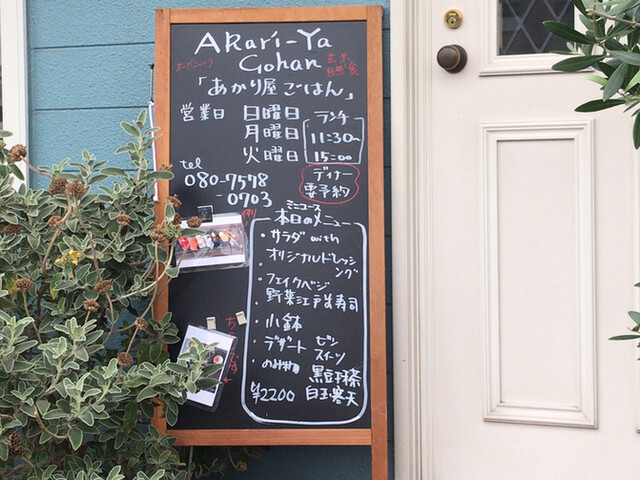 ARari-Ya
Gohan
オーガニック
玄米
自然食
「あかり屋ごはん」
営業日 日曜日
月曜日
火曜日
ランチ
11:30~
15:00
ディナー
要予約
tel
080-7578
-0703
ミニコース
本日のメニュー
・サラダ with
オリジナルドレッシング
・フェイクベジ
野菜江戸前寿司
・小鉢
・デザート ビーン
スイーツ
・のみもの 黒豆玄米茶
¥2200 白玉寒天